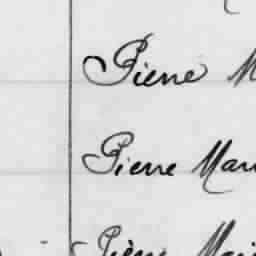 Pierre M
Pierre Mari
Pierre Mari